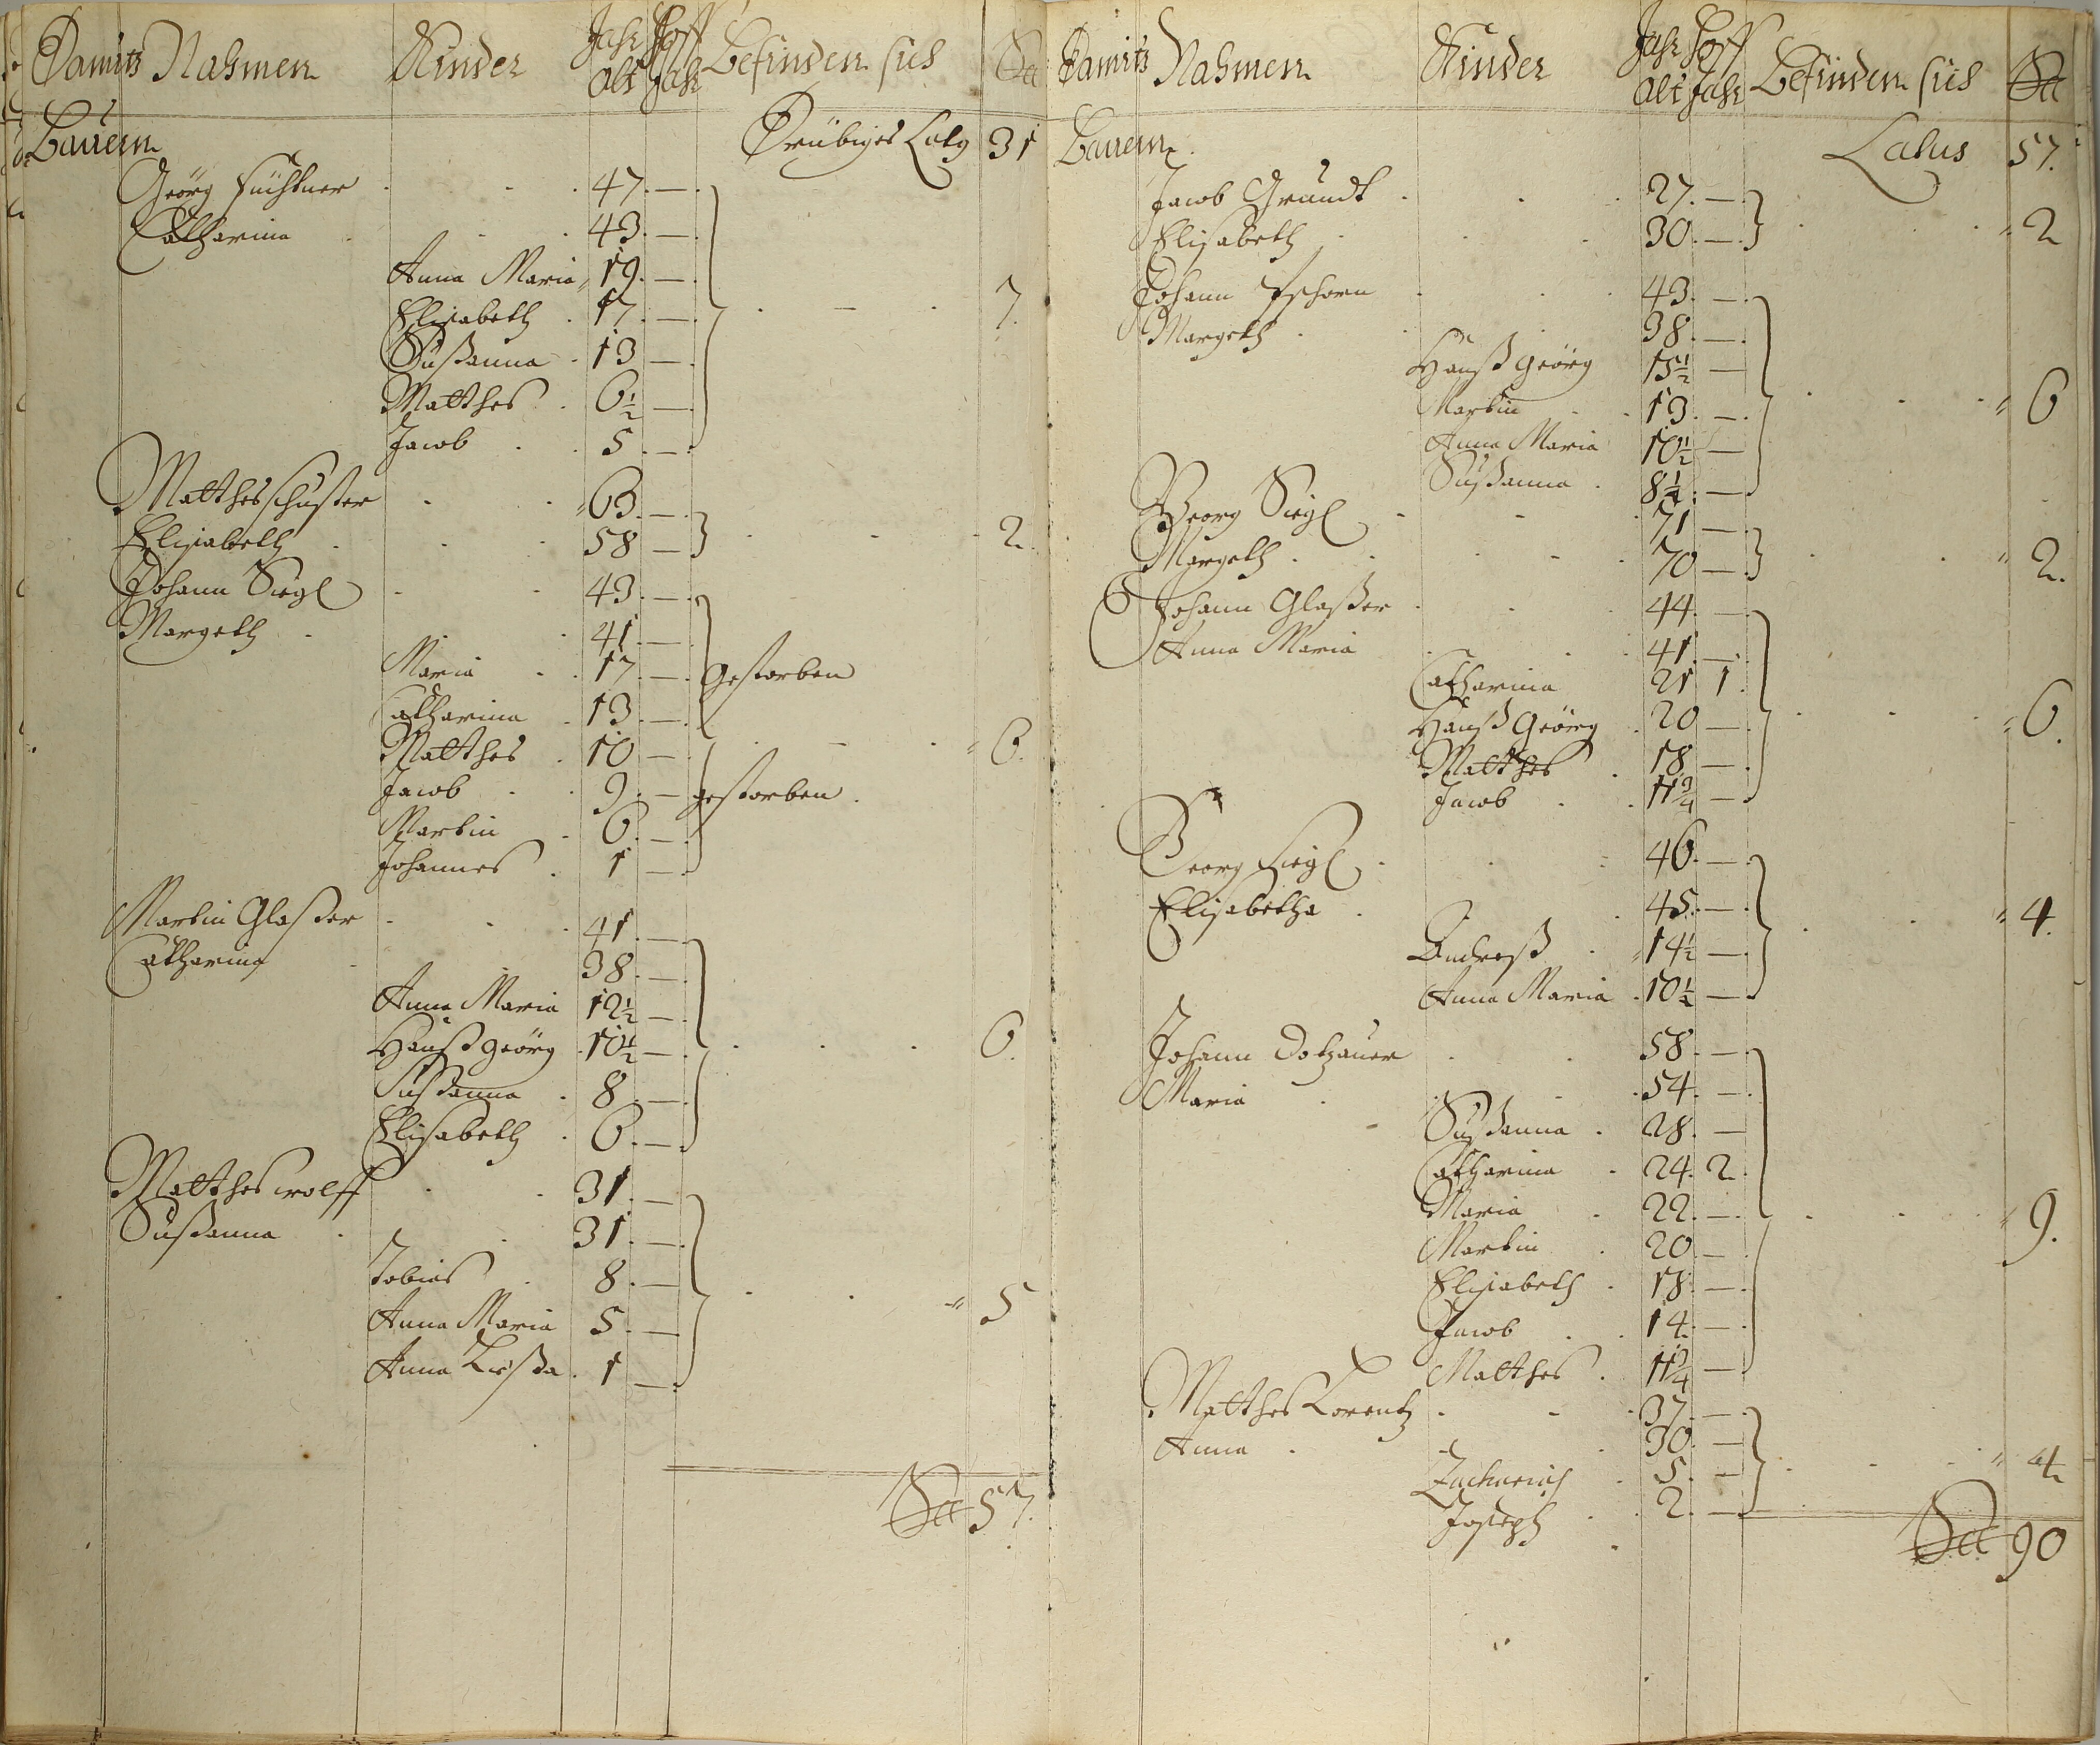 Damitz Nahmen Kinder Jahr Alt Hoff Jahr Befinden sich Sa
Bauern
Drübiges Latg 31
Geörg 47. —
Catharina 43. —
Anna Maria 19. —
Elisabeth 17. — 7.
Sußanna 13 —
Matthes 6½ —
Jacob 5 —
Matthes schuster 63. —
Elisabeth 58 — 2.
Johann Siegl 43. —
Margeth 41. —
Maria 17. — Gestorben
Catharina 13. —
Matthes 10 — 6.
Jacob 9. — gestorben.
Martin 6. —
Johannes 1 —
Martin Glaßer 41. —
Catharina 38. —
Anna Maria 12½ —
Hanß Geörg 10½ — 6.
Sußanna 8 —
Elisabeth 6. —
Matthes wolff 31. —
Sußanna 31. —
Tobias 8. —
Anna Maria 5. — 5
Anna 1 —
Sa 57.
Damitz Nahmen Kinder Jahr Alt Hoff Jahr Befinden sich Sa
Bauern.
Latus 57.
Jacob Grundt 27. —
Elisabeth 30. — 2
Johann 43. —
Margeth 38. —
Hanß Geörg 15½ —
Martin 13. — 6
Anna Maria 10½ —
Sußanna 8¼. —
Georg Siegl 71 —
Margeth 70 — 2.
Johann Glaßer 44. —
Anna Maria 41. —
Catharina 21 1.
Hanß Geörg 20 — 6.
Matthes 18 —
Jacob 11¾ —
Georg Siegl 46. —
Elisabetha 45. — 4.
Andreß 14½ —
Anna Maria 10½ —
Johann Dotzauer 58. —
Maria 54. —
Sußanna 28. —
Catharina 24. 2.
Maria 22. — 9.
Martin 20 —
Elisabeth 18. —
Jacob 14. —
Matthes 11¾ —
Matthes Lorentz 37. —
Anna 30. —
Zacharias 5. — 4
Joseph 2. —
Sa 90